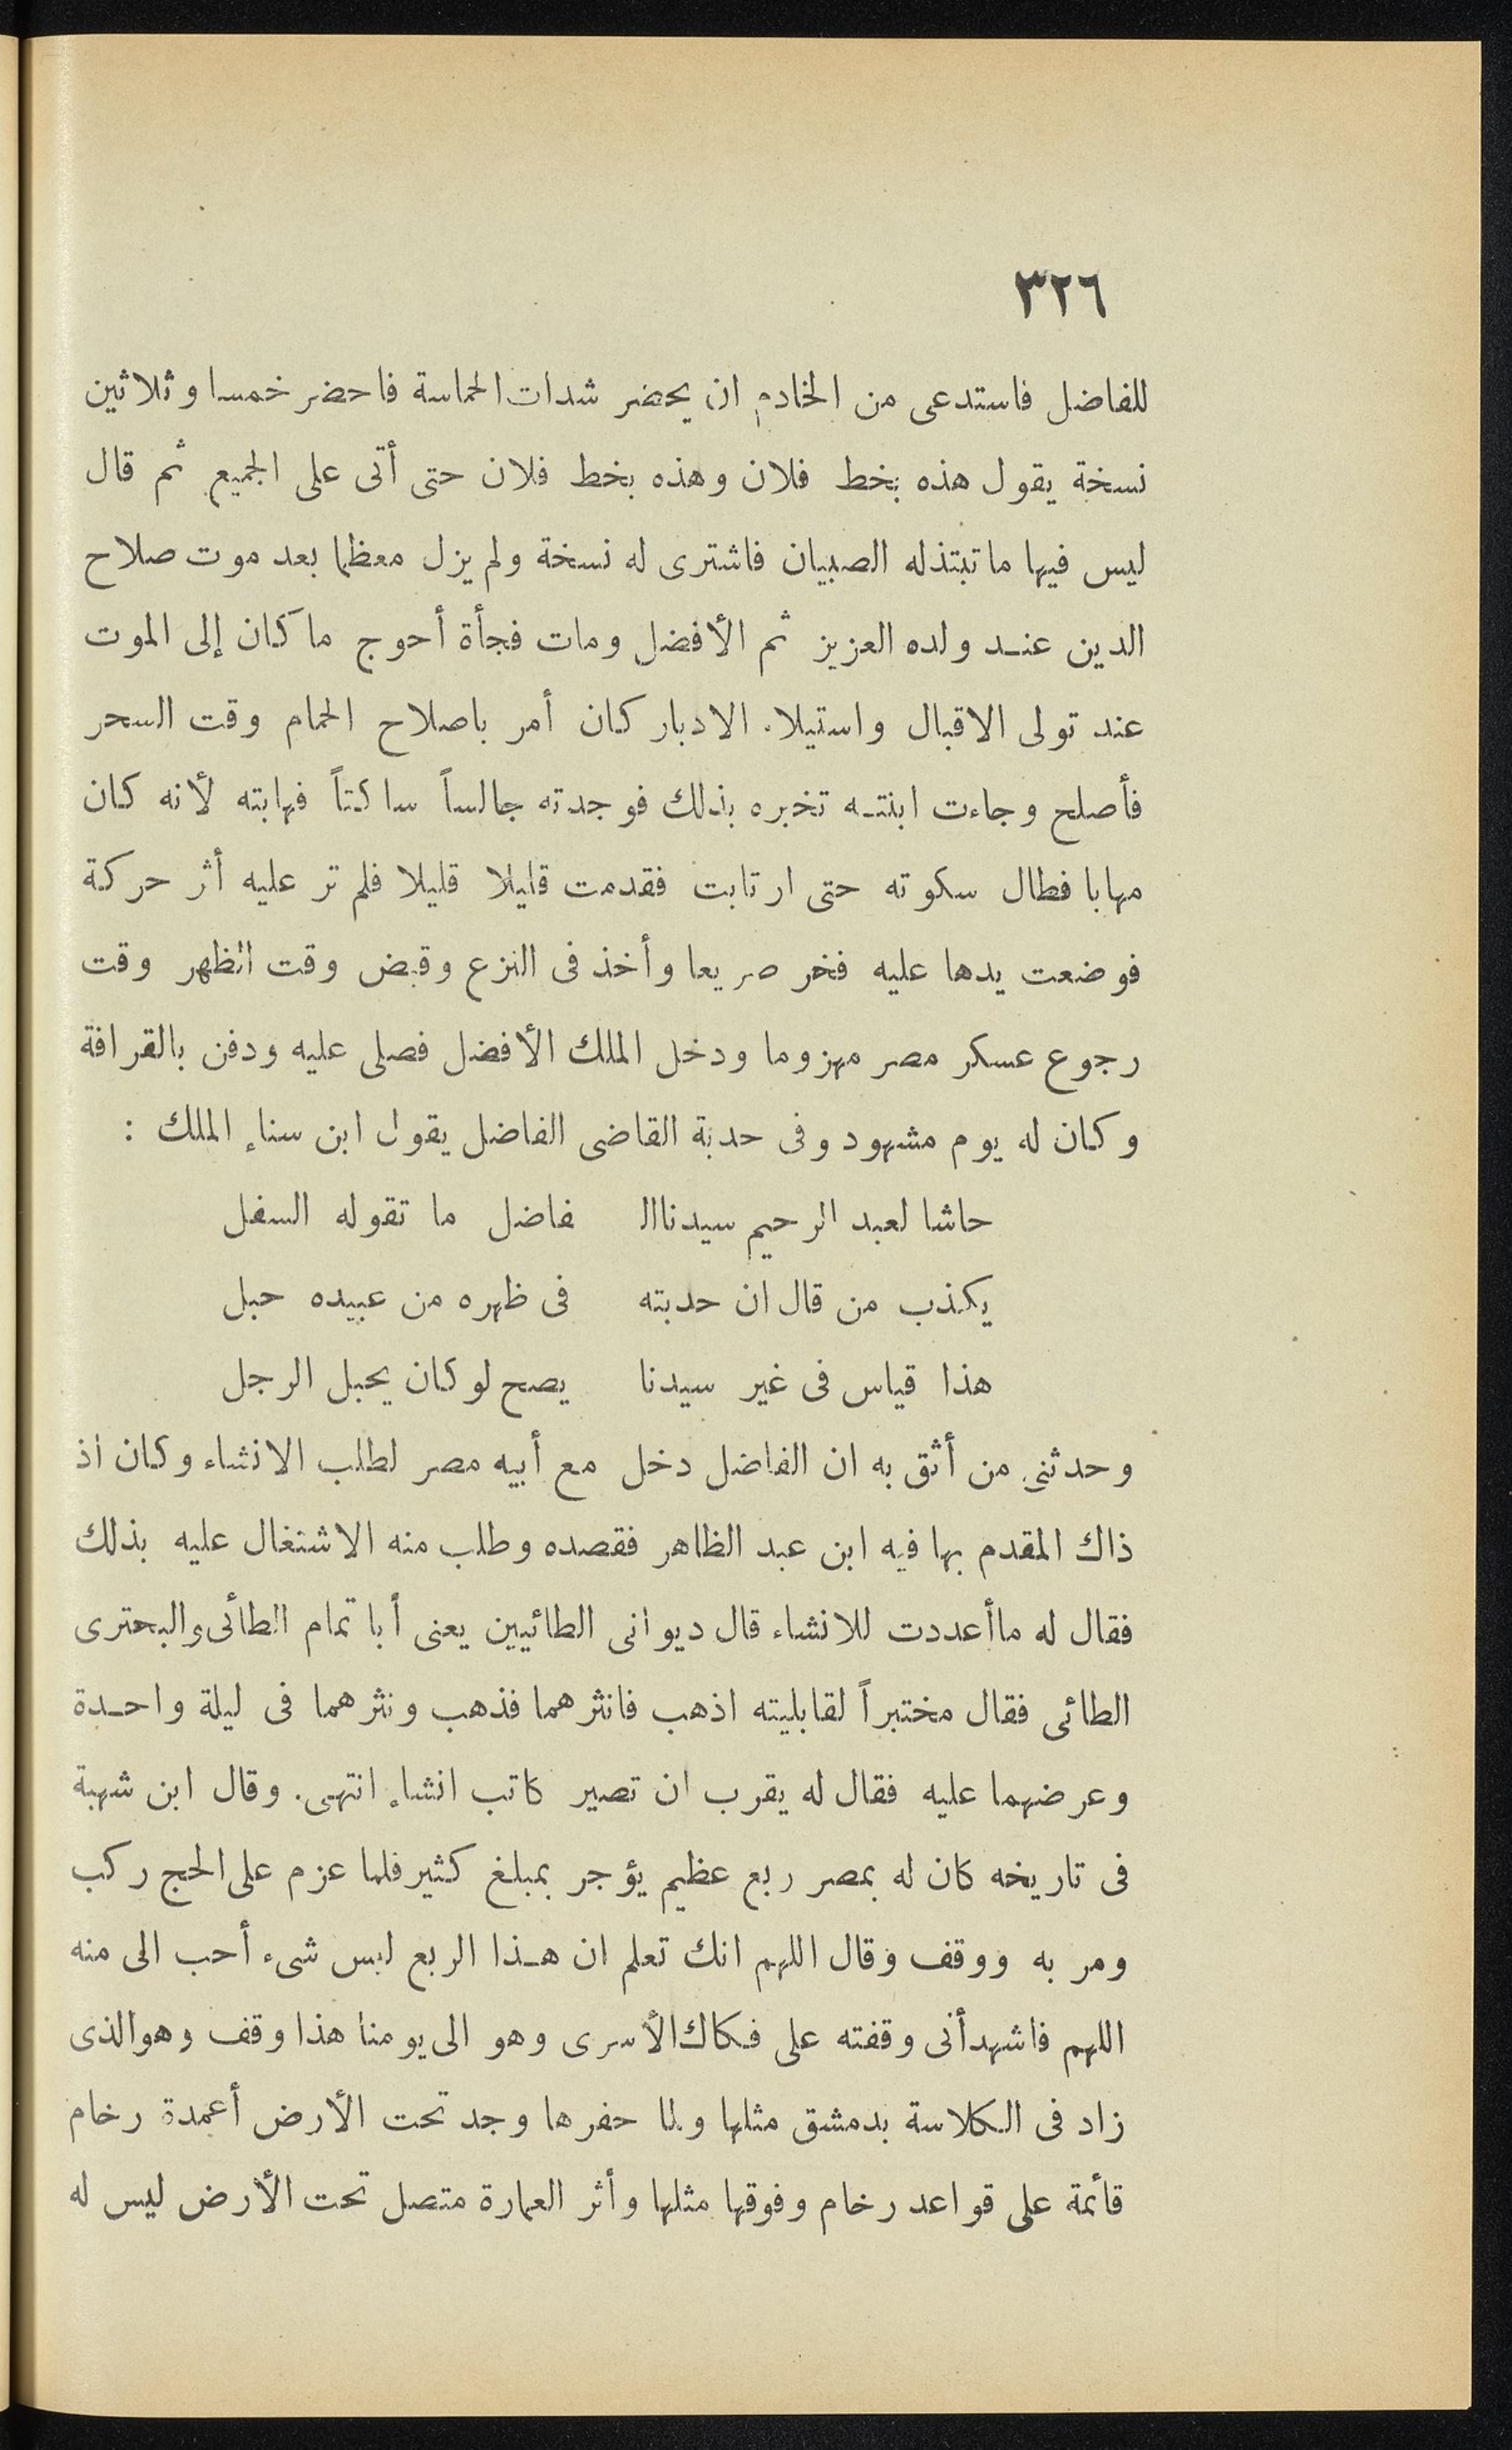 ٣٢٦
للفاضل فاستدعى من الخادم ان يحضر شدات الحماسة فاحضر خمسا وثلاثين
نسخة يقول هذه بخط فلان وهذه بخط فلان حتى أتى على الجميع ثم قال
ليس فيها ما تبتذله الصبيان فاشترى له نسخة ولم يزل معظما بعد موت صلاح
الدين عند ولده العزيز ثم الأفضل ومات فجأة أحوج ما كان إلى الموت
عند تولى الاقبال واستيلاء الادبار كان أمر باصلاح الحمام وقت السحر
فأصلح وجاءت ابنته تخبره بذلك فوجدته جالساً ساكتاً فهابته لأنه كان
مهابا فطال سكوته حتى ارتابت فقدمت قليلا قليلا فلم تر عليه أثر حركة
فوضعت يدها عليه فخر صريعا وأخذ فى النزع وقبض وقت الظهر وقت
رجوع عسكر مصر مهزوما ودخل الملك الأفضل فصلى عليه ودفن بالقرافة
وكان له يوم مشهود وفى حدبة القاضى الفاضل يقول ابن سناء الملك :
حاشا لعبد الرحيم سيدنا ال فاضل ما تقوله السفل
يكذب من قال ان حدبته فى ظهره من عبيده حبل
هذا قياس فى غير سيدنا يصح لو كان يحبل الرجل
وحدثنى من أثق به ان الفاضل دخل مع أبيه مصر لطلب الانشاء وكان اذ
ذاك المقدم بها فيه ابن عبد الظاهر فقصده وطلب منه الاشتغال عليه بذلك
فقال له ما أعددت للانشاء قال ديوانى الطائيين يعنى أبا تمام الطائى والبحترى
الطائى فقال مختبراً لقابليته اذهب فانثرهما فذهب ونثرهما فى ليلة واحدة
وعرضهما عليه فقال له يقرب ان تصير كاتب انشاء انتهى. وقال ابن شهبة
فى تاريخه كان له بمصر ربع عظيم يؤجر بمبلغ كثير فلما عزم على الحج ركب
ومر به ووقف وقال اللهم انك تعلم ان هذا الربع ليس شىء أحب الى منه
اللهم فاشهد أنى وقفته على فكاك الأسرى وهو الى يومنا هذا وقف وهو الذى
زاد فى الكلاسة بدمشق مثلها ولما حفرها وجد تحت الأرض أعمدة رخام
قائمة على قواعد رخام وفوقها مثلها وأثر العمارة متصل تحت الأرض ليس له